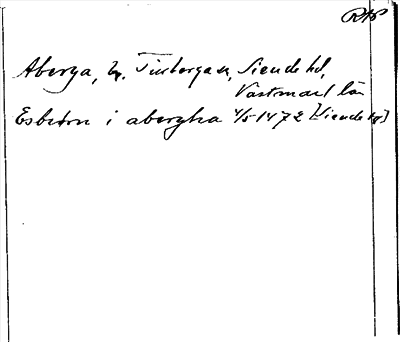 RAP
Aberga, by. Tortuna sn, Siende hd,
Västmanl. län
Esbiörn i abergha 4/5 1472 [Siende hd]